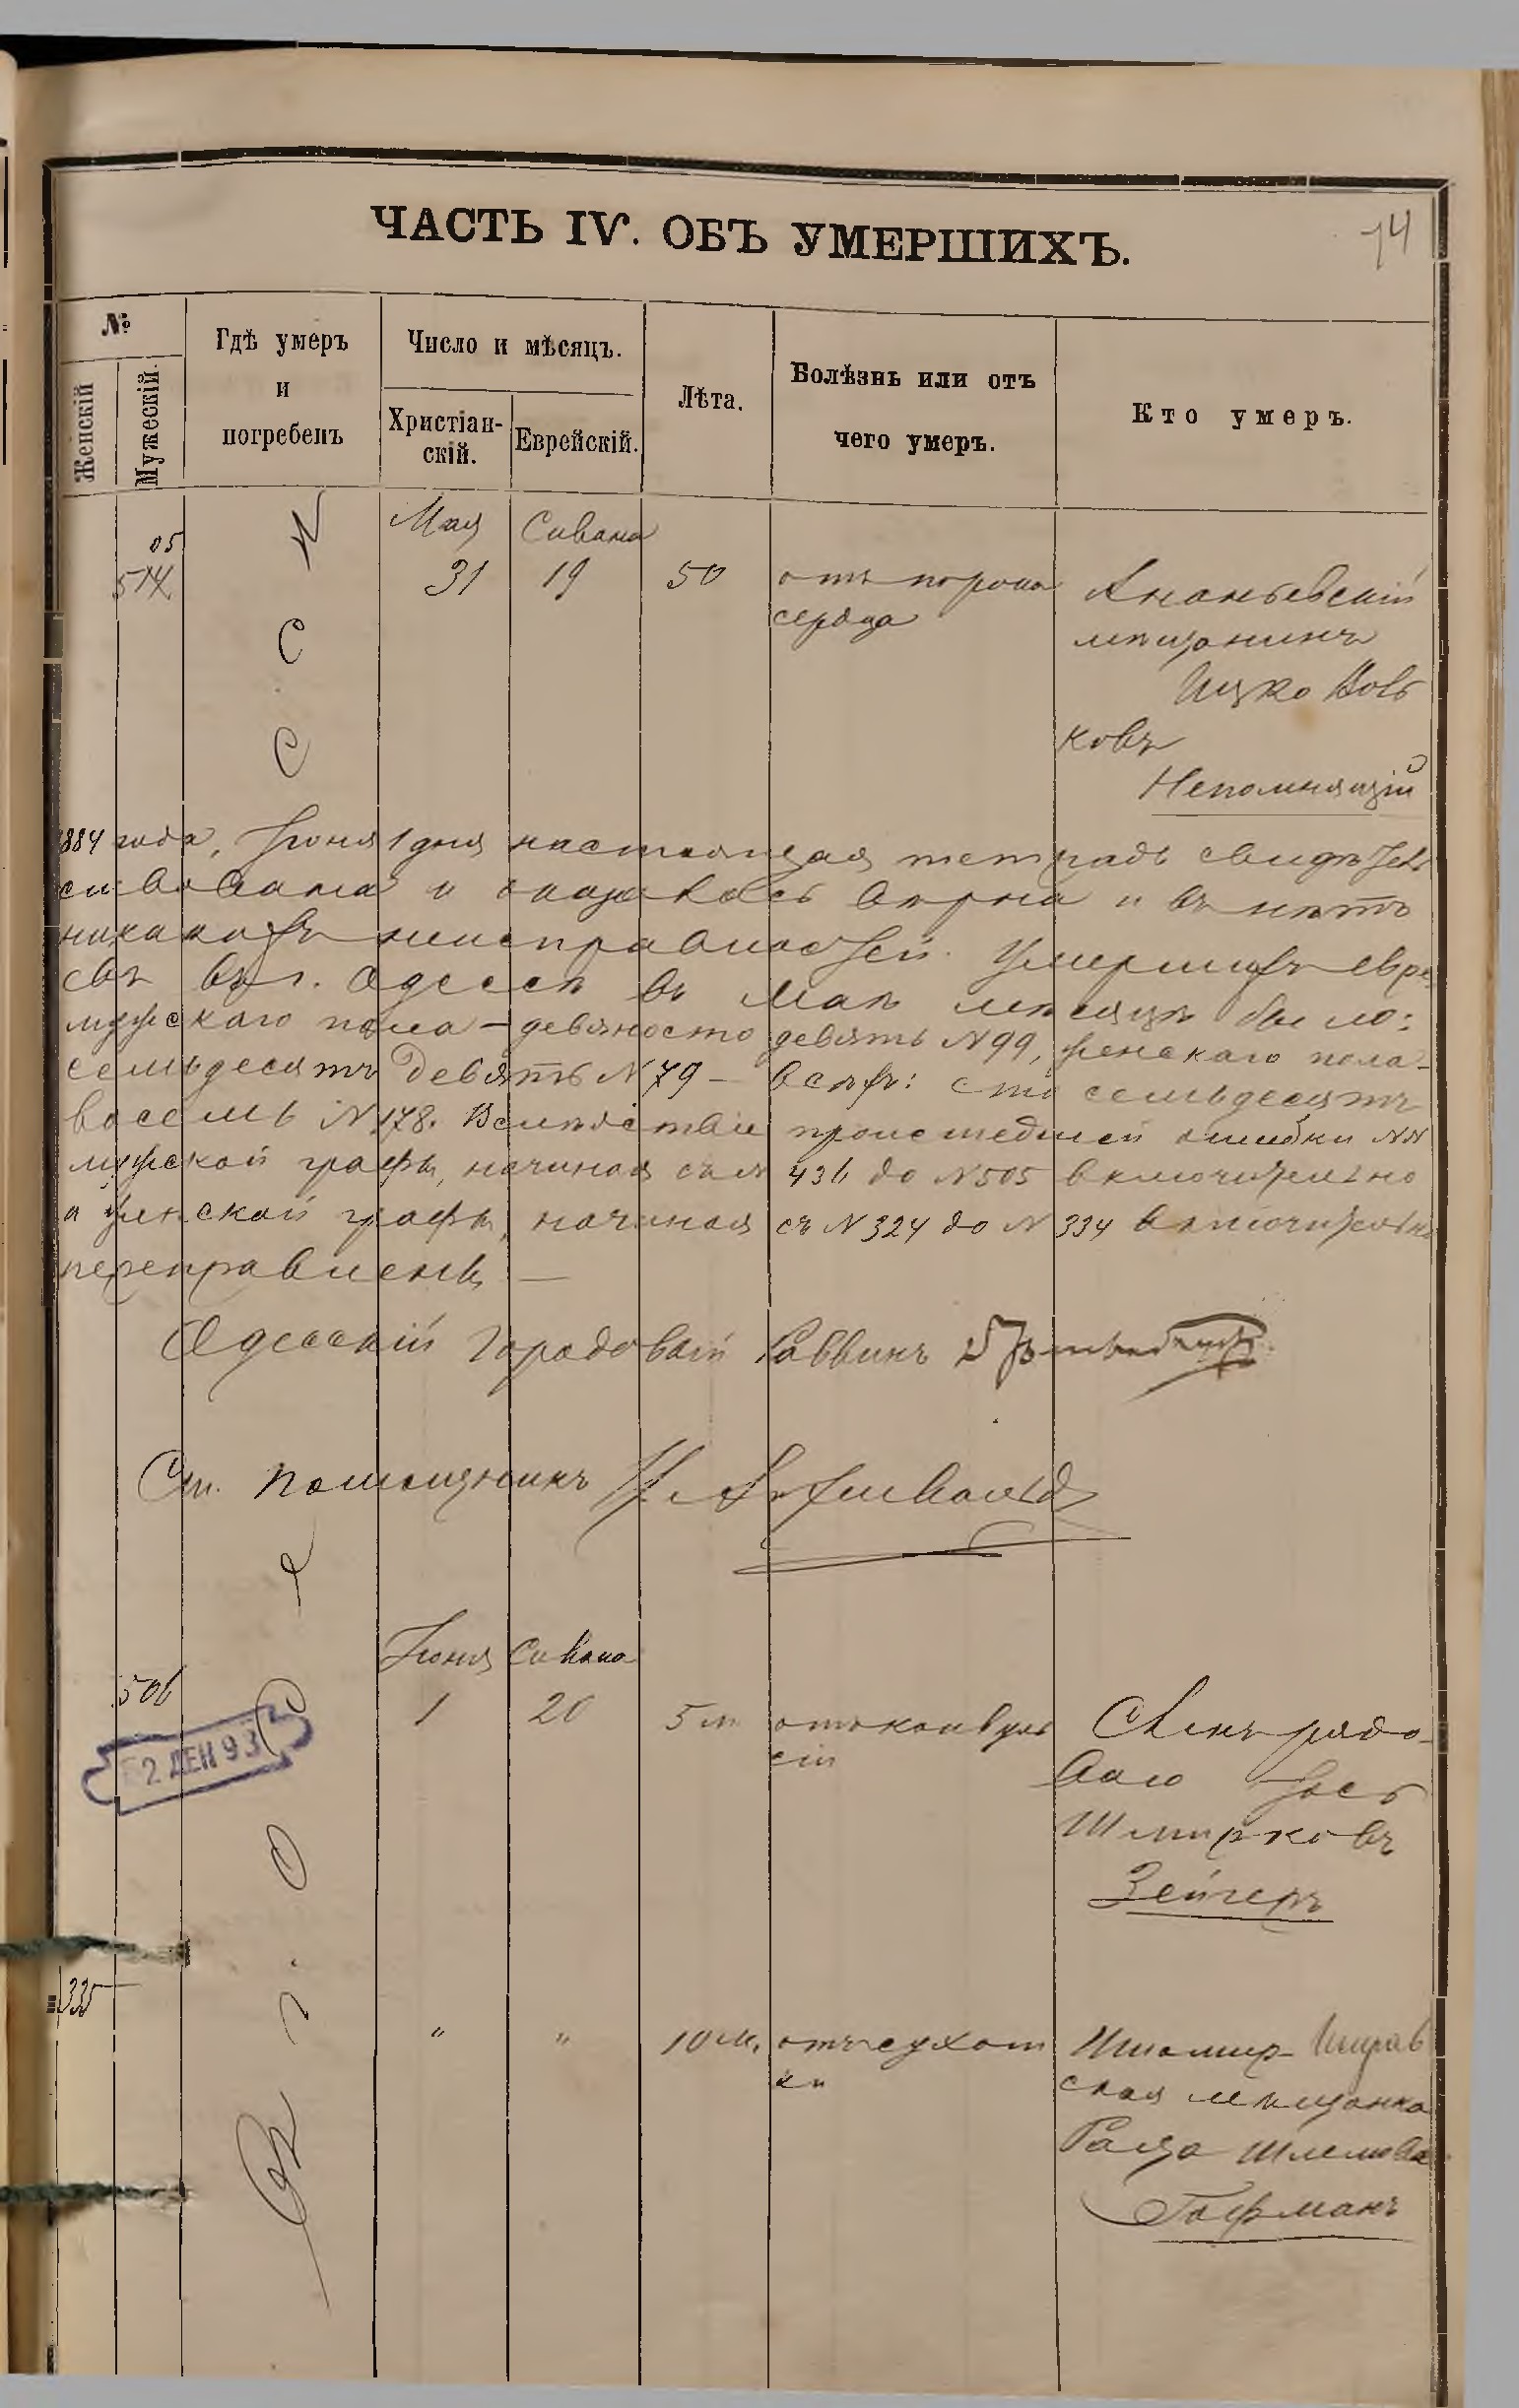 74
ЧАСТЬ IV. ОБЪ УМЕРШИХЪ.
№
Женскій
Мужескій.
Гдѣ умеръ
и
погребенъ
Число и мѣсяцъ.
Христіан-
скій.
Еврейскій.
Лѣта.
Болѣзнь или отъ
чего умеръ.
Кто умеръ.
Мая Сивана
05
31 19 50 отъ порока Ананьевскій
сердца мѣщанинъ
Ицко Вовъ
ковъ
Непомнящій
1884 года, Іюня 1 дня настоящая тетрадь свидѣтель
ствована и оказалась вѣрна и въ нѣтъ
никакихъ неисправностей. Умершихъ евре
евъ въ г. Одессѣ въ Маѣ мѣсяцѣ было:
мужскаго пола – девяносто девять N 99, женскаго пола –
семьдесятъ девять N 79 – всѣхъ: сто семьдесятъ
восемь N 178. Вслѣдствіе происшедшей ошибки NN
мужской графы, начиная съ N 436 до N 505 включительно
а женской графы, начиная съ N 324 до N 334 включительно
переправлены —
Одесскій Городовой Раввинъ
Ст. Помощникъ
Іюня Сивана
506
1 20 5 м отъ конвуль
сіи
Сынъ рядо-
ваго Іось
Шмирковъ
Зейгеръ
2 ДЕН 93
335
" " 10 м. отъ сухот
ки
ская мѣщанка
Шлемова
Гофманъ